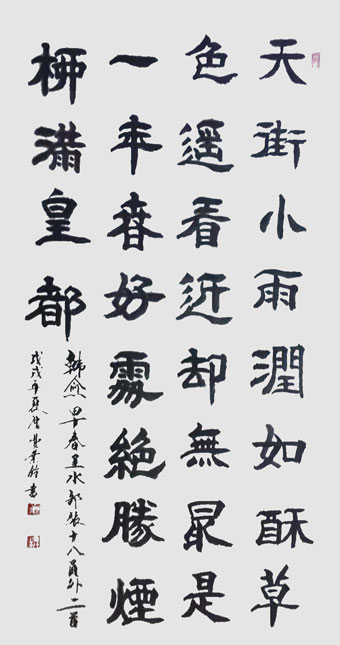 天街小雨潤如酥草
色遥看近却無最是
一年春好處絶勝煙
柳滿皇都
韓愈早春呈水部張十八員外二首
戊戌年 書